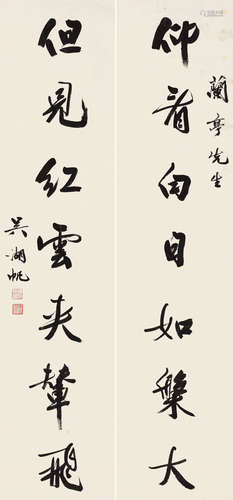 蘭亭先生
仰看白日如槃大
但見紅雲夾輦飛
吳湖帆